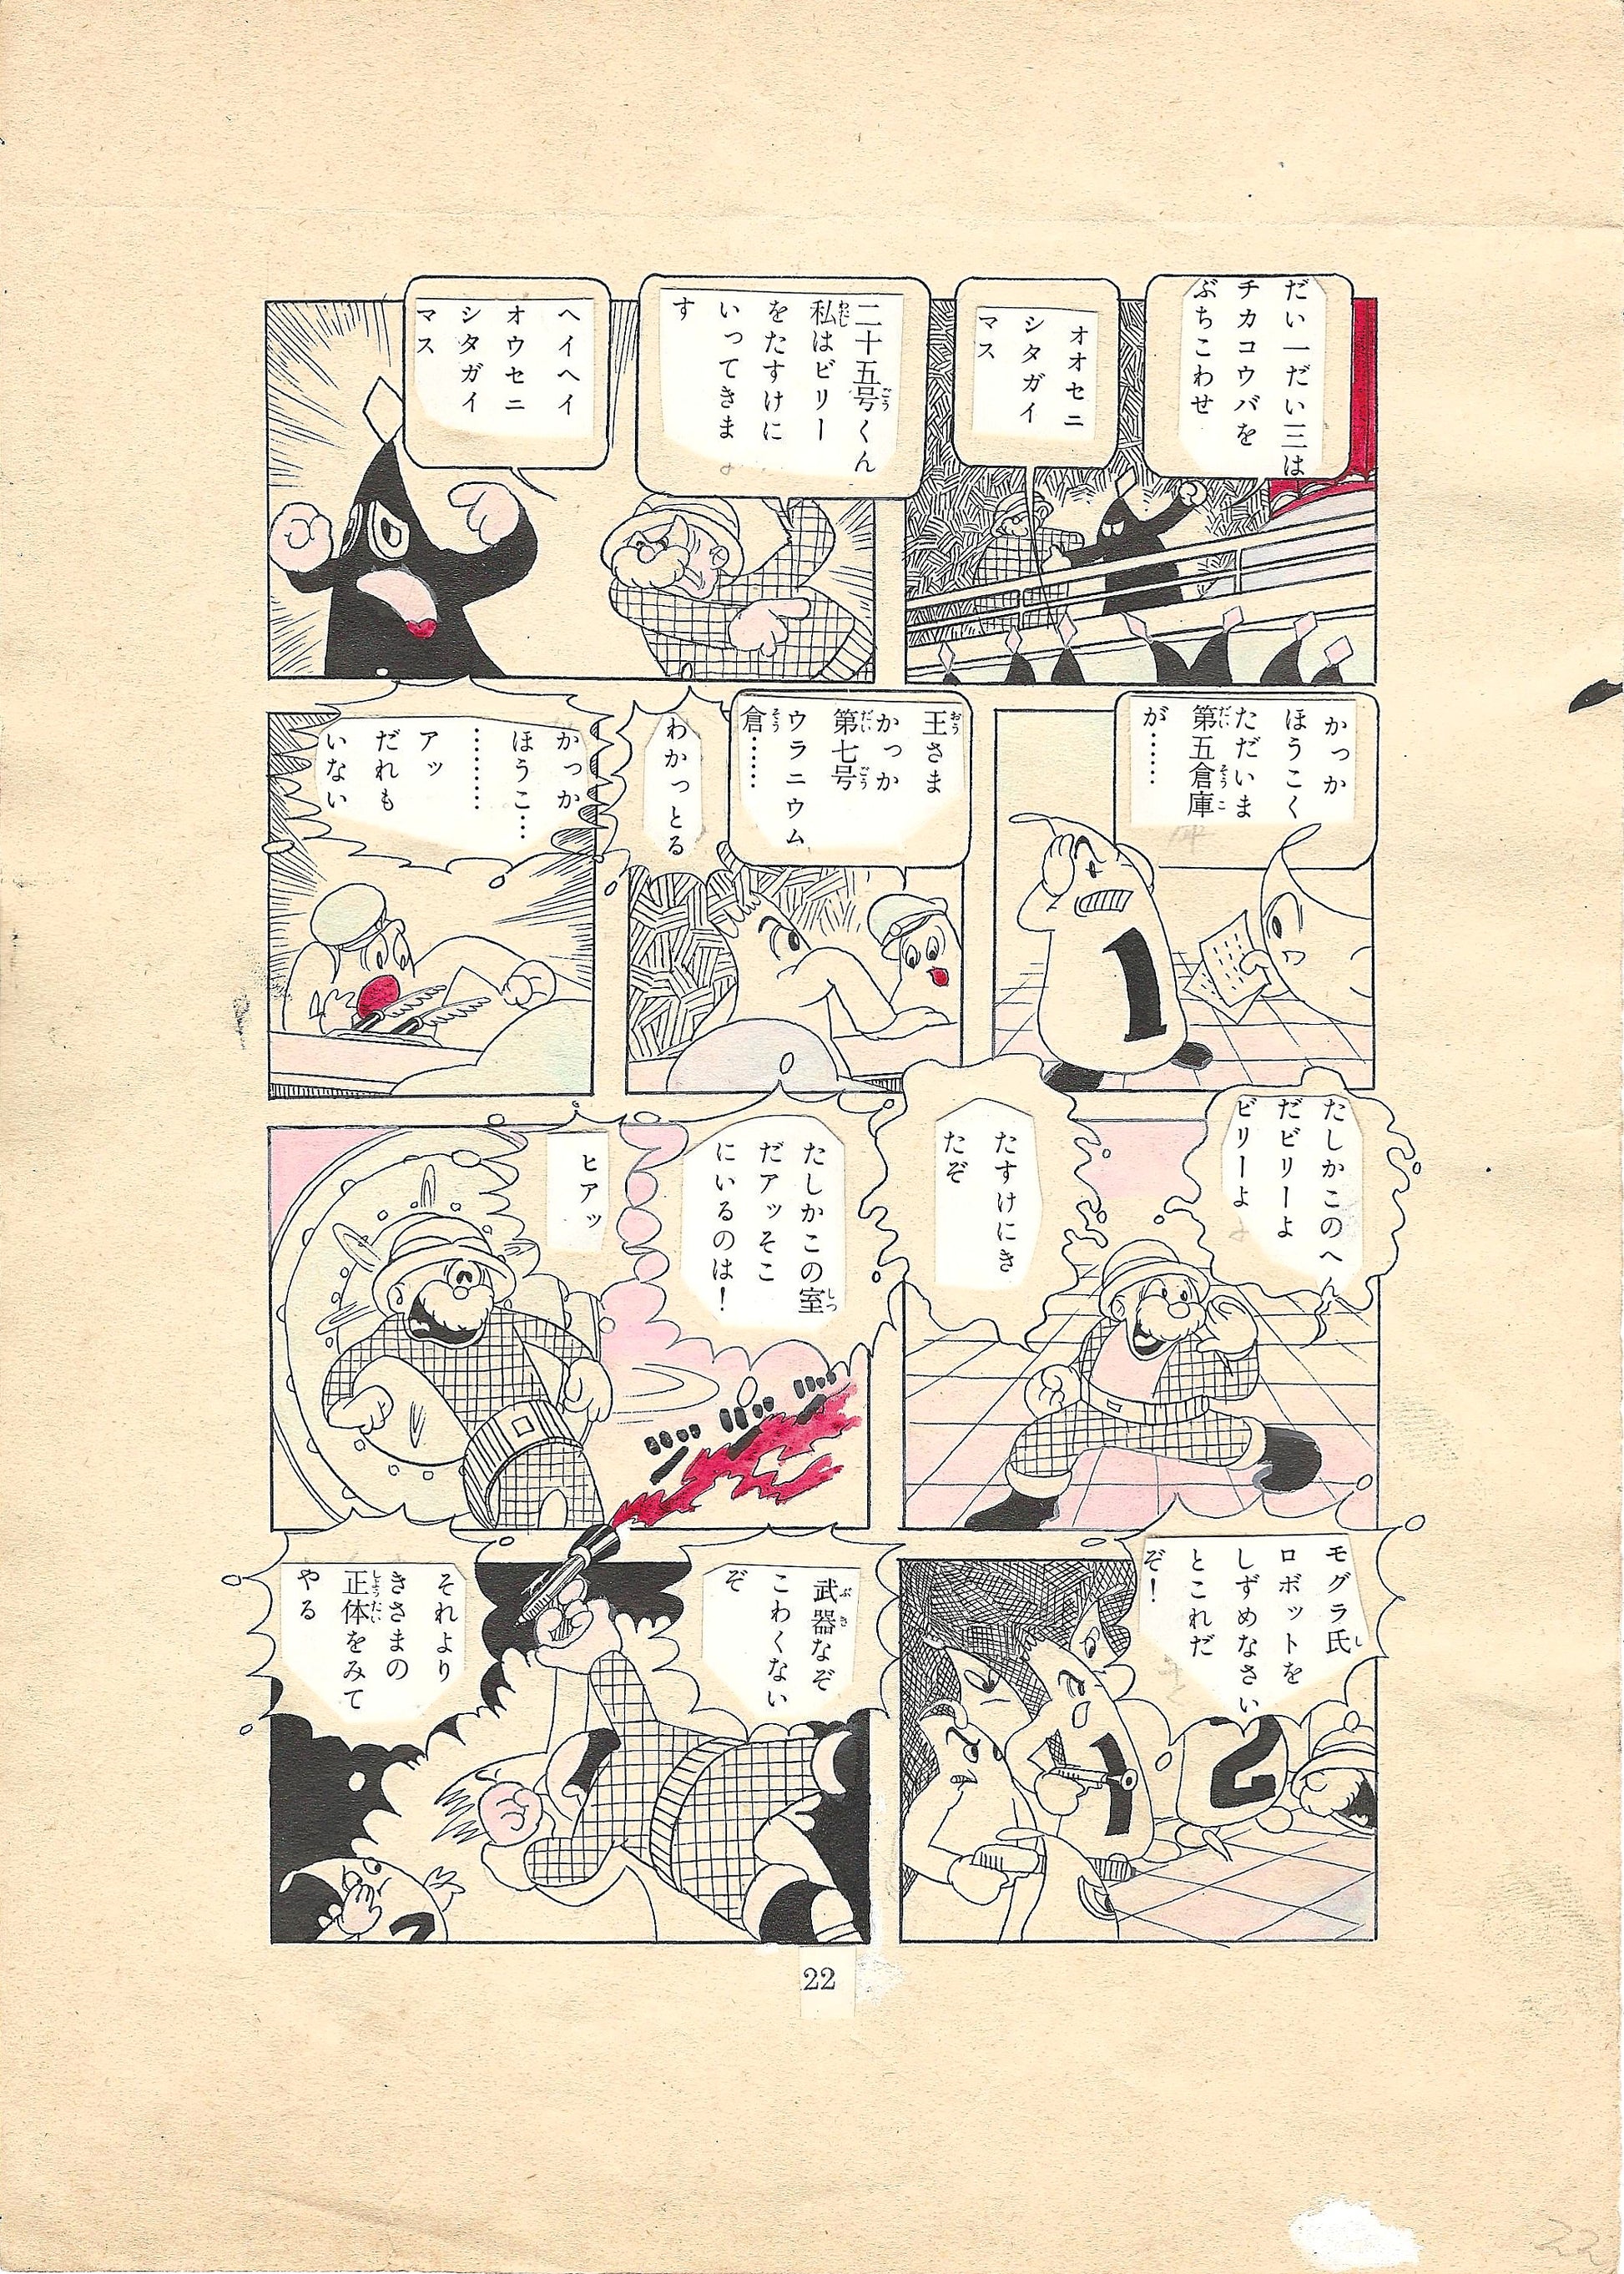 だい一だい三は
チカコウバを
ぶちこわせ
オオセニ
シタガイ
マス
二十五号くん
私はビリー
をたすけに
いってきま
す
ヘイヘイ
オウセニ
シタガイ
マス
かっか
ほうこく
ただいま
第五倉庫
が……
王さま
かっか
第七号
ウラニウム
倉……
わかっとる
かっか
ほうこ…
………
アッ
だれも
いない
たしかこのへ
だビリーよ
ビリーよ
たすけにき
たぞ
たしかこの室
だアッそこ
にいるのは!
ヒアッ
モグラ氏
ロボットを
しずめなさい
とこれだ
ぞ!
武器なぞ
こわくない
ぞ
それより
きさまの
正体をみて
やる
1
1
2
22
22